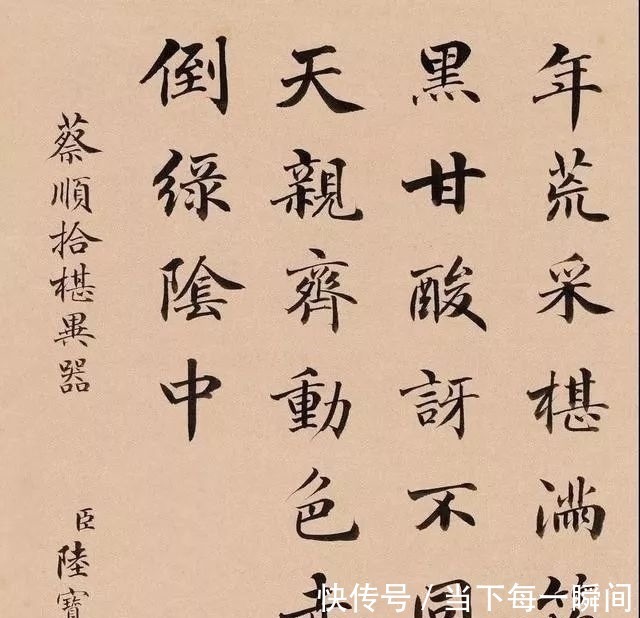 年荒采椹滿
黑甘酸訝不同
天親齊動色
倒綠陰中
蔡順拾椹異器
臣陸寶
快传号 / 当下每一瞬间